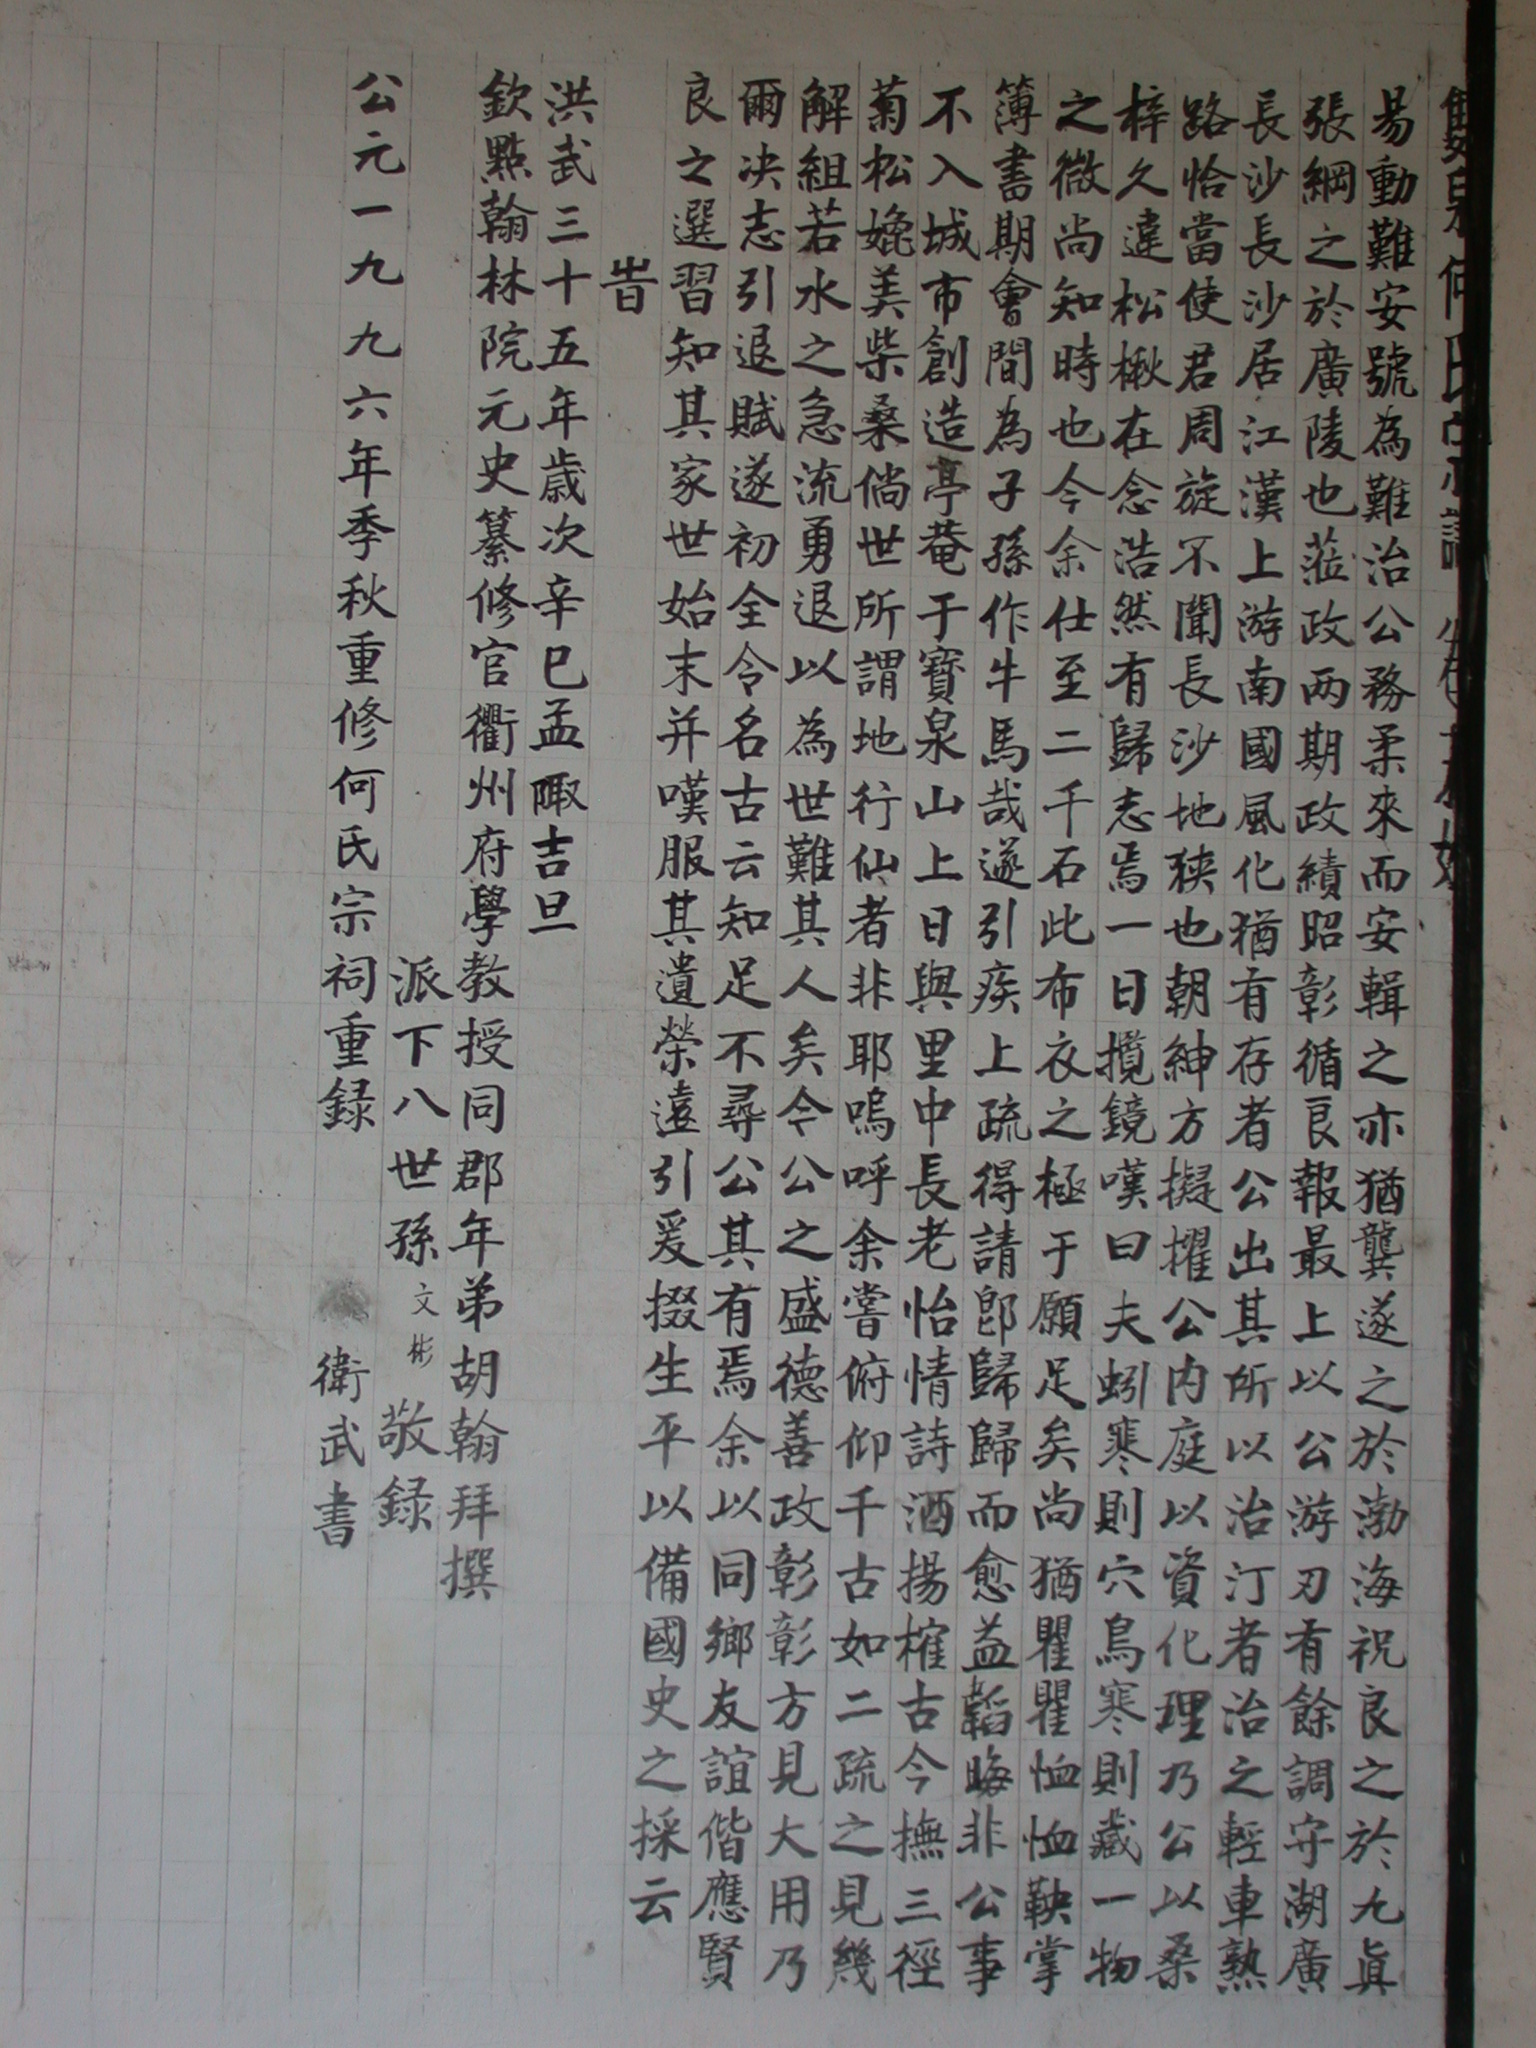 易動難安號為難治公務柔來而安輯之亦猶龔遂之於渤海祝良之於九眞
張綱之於廣陵也蒞政两期政績昭彰循良報最上以公游刃有餘調守湖廣
長沙長沙居江漢上游南國風化猶有存者公出其所以治汀者治之輕車熟
路恰當使君周旋不聞長沙地狹也朝紳方擬擢公内庭以資化理乃公以桑
梓久違松楸在念浩然有歸志焉一日攬鏡嘆曰夫蚓寒則穴鳥寒則藏一物
之微尚知時也今余仕至二千石此布衣之極于願足矣尚猶瞿瞿恤恤鞅掌
簿書期會間為子孫作牛馬哉遂引疾上疏得請卽歸歸而愈益韜晦非公事
不入城市創造亭菴于寶泉山上日與里中長老怡情詩酒揚榷古今撫三徑
菊松媲美柴桑倘世所謂地行仙者非耶嗚呼余嘗俯仰千古如二疏之見幾
解組若水之急流勇退以為世難其人矣今公之盛德善政彰彰方見大用乃
爾决志引退賦遂初全令名古云知足不辱公其有焉余以同鄉友誼偕應賢
良之選習知其家世始末并嘆服其遺榮遠引爰掇生平以備國史之採云
旹
洪武三十五年歲次辛巳孟陬吉旦
欽點翰林院元史纂修官衢州府學教授同郡年弟胡翰拜撰
派下八世孫文彬敬録
公元一九九六年季秋重修何氏宗祠重録 衛武書